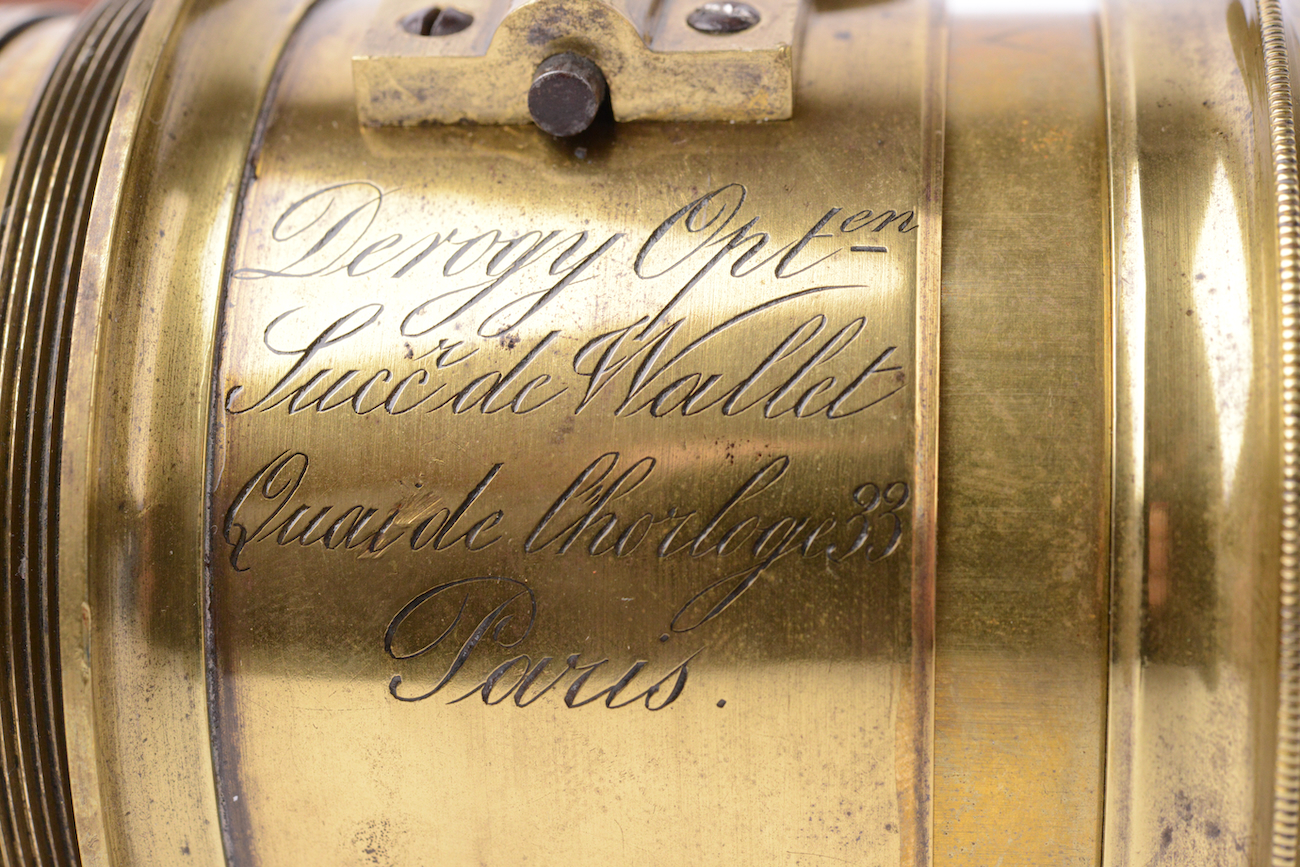 Derogy Opt.en
Succ.r de Wallet
Quai de l'horloge 33
Paris.